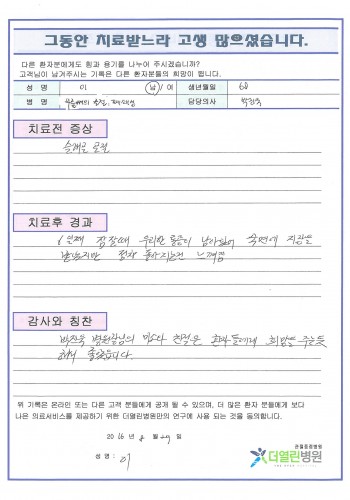 그동안 치료받느라 고생 많으셨습니다.
다른 환자분에게도 힘과 용기를 나누어 주시겠습니까?
고객님이 남겨주시는 기록은 다른 환자분들의 희망이 됩니다.
성 명 이 남/여 생년월일 60
병 명 담당의사
치료전 증상
슬개골 골절
치료후 경과
잠잘때 우리한 통증이 남아있어 숙면에 지장을
받았지만 점차 좋아지는걸 느껴짐
감사와 칭찬
병원장님의 미소와 친절은 환자들에게 희망을 주는듯
해서 좋았습니다.
위 기록은 온라인 또는 다른 고객 분들에게 공개 될 수 있으며, 더 많은 환자 분들에게 보다
나은 의료서비스를 제공하기 위한 더열린병원만의 연구에 사용 되는 것을 동의합니다.
2016 년 8 월 29 일
성 명 : 이
관절종증병원
더열린병원